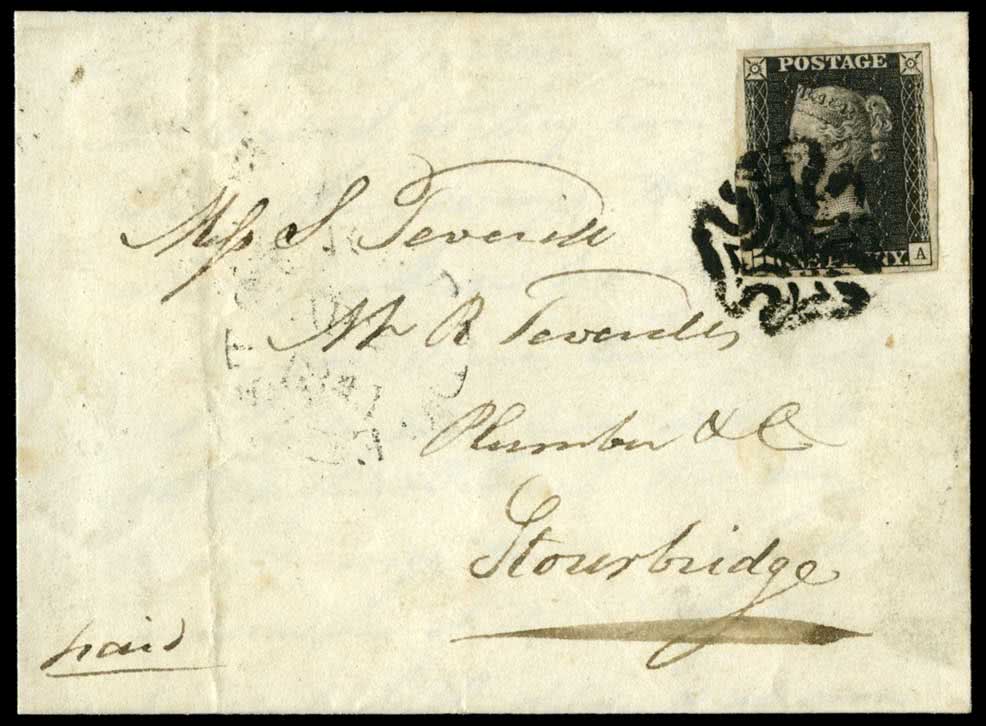 POSTAGE
ONE PENNY A
Miss S Teverill
Mr R Teverills
Plumber & C
Stourbridge
paid